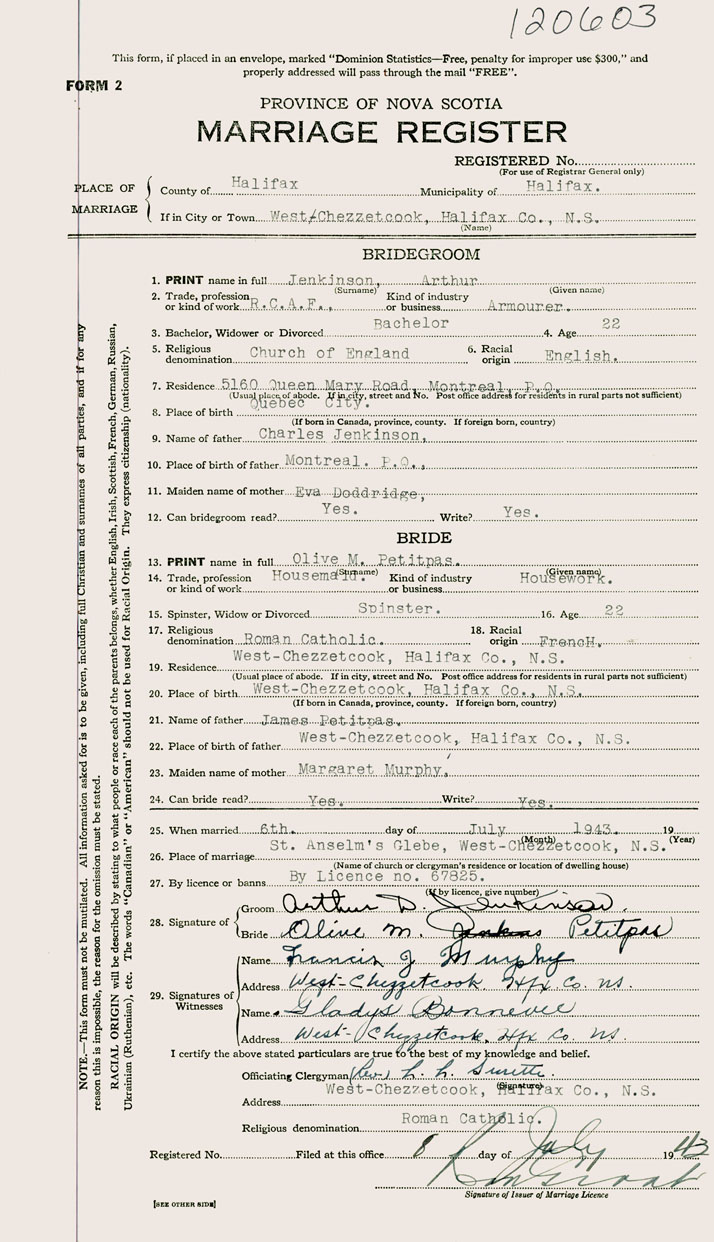 120603
This form, if placed in an envelope, marked "Dominion Statistics—Free, penalty for improper use $300," and
properly addressed will pass through the mail "FREE".
FORM 2
PROVINCE OF NOVA SCOTIA
MARRIAGE REGISTER
REGISTERED No.
(For use of Registrar General only)
PLACE OF MARRIAGE
County of Halifax Municipality of Halifax.
If in City or Town West/Chezzetcook, Halifax Co., N.S.
(Name)
BRIDEGROOM
1. PRINT name in full Jenkinson, Arthur
(Surname) (Given name)
2. Trade, profession or kind of work R.C.A.F., Kind of industry or business Armourer.
3. Bachelor, Widower or Divorced Bachelor 4. Age 22
5. Religious denomination Church of England 6. Racial origin English.
7. Residence 5160 Queen Mary Road, Montreal, P.Q.
(Usual place of abode. If in city, street and No. Post office address for residents in rural parts not sufficient)
8. Place of birth Quebec City.
(If born in Canada, province, county. If foreign born, country)
9. Name of father Charles Jenkinson,
10. Place of birth of father Montreal. P.Q.,
11. Maiden name of mother Eva Doddridge,
12. Can bridegroom read? Yes. Write? Yes.
BRIDE
13. PRINT name in full Olive M. Petitpas.
(Surname) (Given name)
14. Trade, profession or kind of work Housemaid. Kind of industry or business Housework.
15. Spinster, Widow or Divorced Spinster. 16. Age 22
17. Religious denomination Roman Catholic. 18. Racial origin FrencH.
19. Residence West-Chezzetcook, Halifax Co., N.S.
(Usual place of abode. If in city, street and No. Post office address for residents in rural parts not sufficient)
20. Place of birth West-Chezzetcook, Halifax Co., N.S.
(If born in Canada, province, county. If foreign born, country)
21. Name of father James Petitpas.
22. Place of birth of father West-Chezzetcook, Halifax Co., N.S.
23. Maiden name of mother Margaret Murphy,
24. Can bride read? Yes. Write? Yes.
25. When married 6th. day of July 1943. 19
(Month) (Year)
26. Place of marriage St. Anselm's Glebe, West-Chezzetcook, N.S.
(Name of church or clergyman's residence or location of dwelling house)
27. By licence or banns By Licence no. 67825.
(If by licence, give number)
28. Signature of
Groom Arthur D. Jenkinson.
Bride Olive M. Petitpas
29. Signatures of Witnesses
Name Francis J Murphy
Address West-Chezzetcook Hfx Co. NS.
Name Gladys Bonnevie
Address West-Chezzetcook, Hfx Co. NS.
I certify the above stated particulars are true to the best of my knowledge and belief.
Officiating Clergyman (Rev.) L. L. Surette.
(Signature)
Address West-Chezzetcook, Halifax Co., N.S.
Religious denomination Roman Catholic.
Registered No. Filed at this office 8 day of July 1943
Signature of Issuer of Marriage Licence
[SEE OTHER SIDE]
NOTE.—This form must not be mutilated. All information asked for is to be given, including full Christian and surnames of all parties, and if for any
reason this is impossible, the reason for the omission must be stated.
RACIAL ORIGIN will be described by stating to what people or race each of the parents belongs, whether English, Irish, Scottish, French, German, Russian,
Ukrainian (Ruthenian), etc. The words "Canadian" or "American" should not be used for Racial Origin. They express citizenship (nationality).